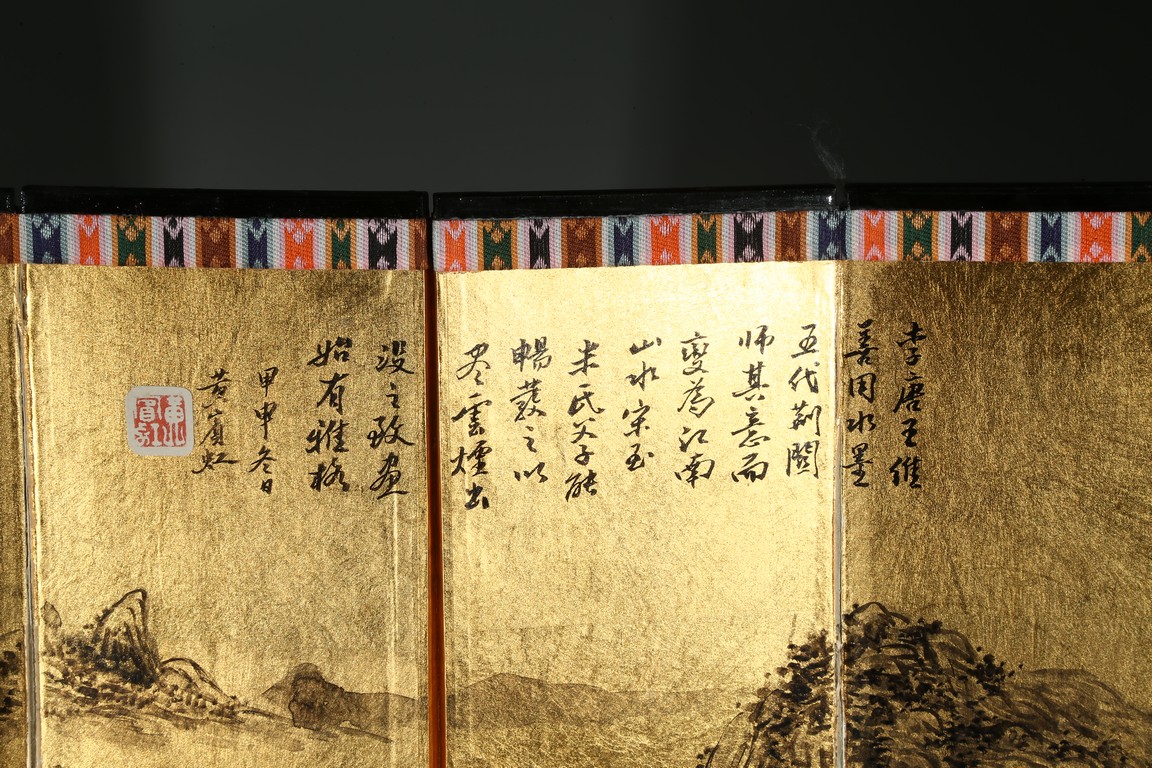 李唐王維
善用水墨
五代荊關
師其意而
變為江南
山水宋至
米氏父子能
暢發之以
尽雲煙出
沒之致画
始有雅格
甲申冬日
黃賓虹
黃賓虹